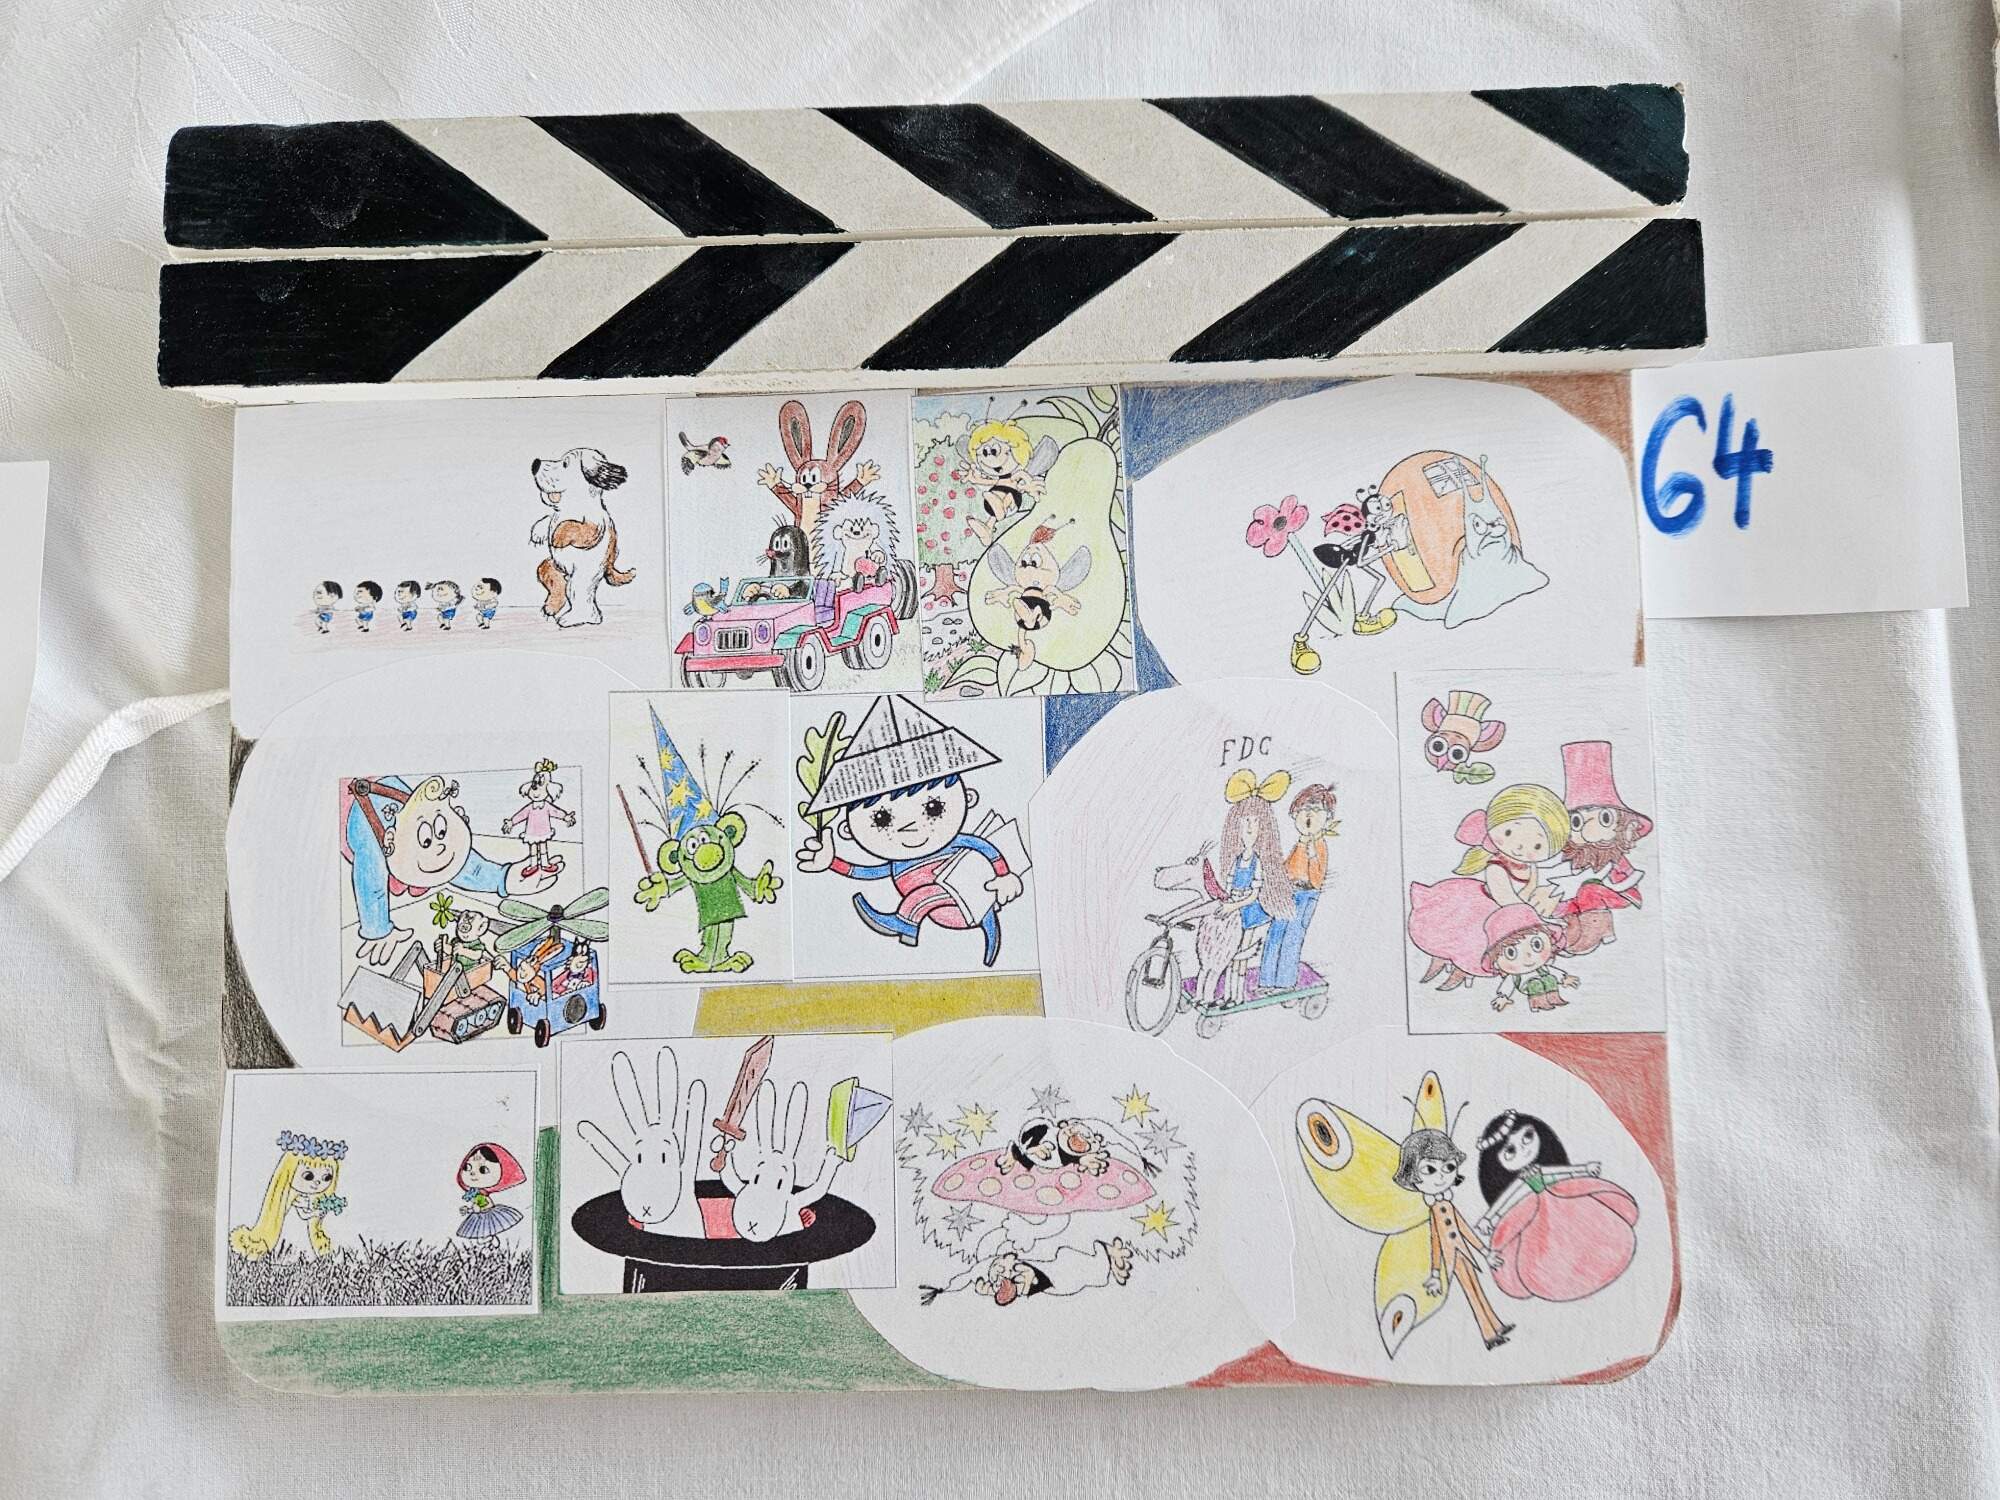 64
FDC